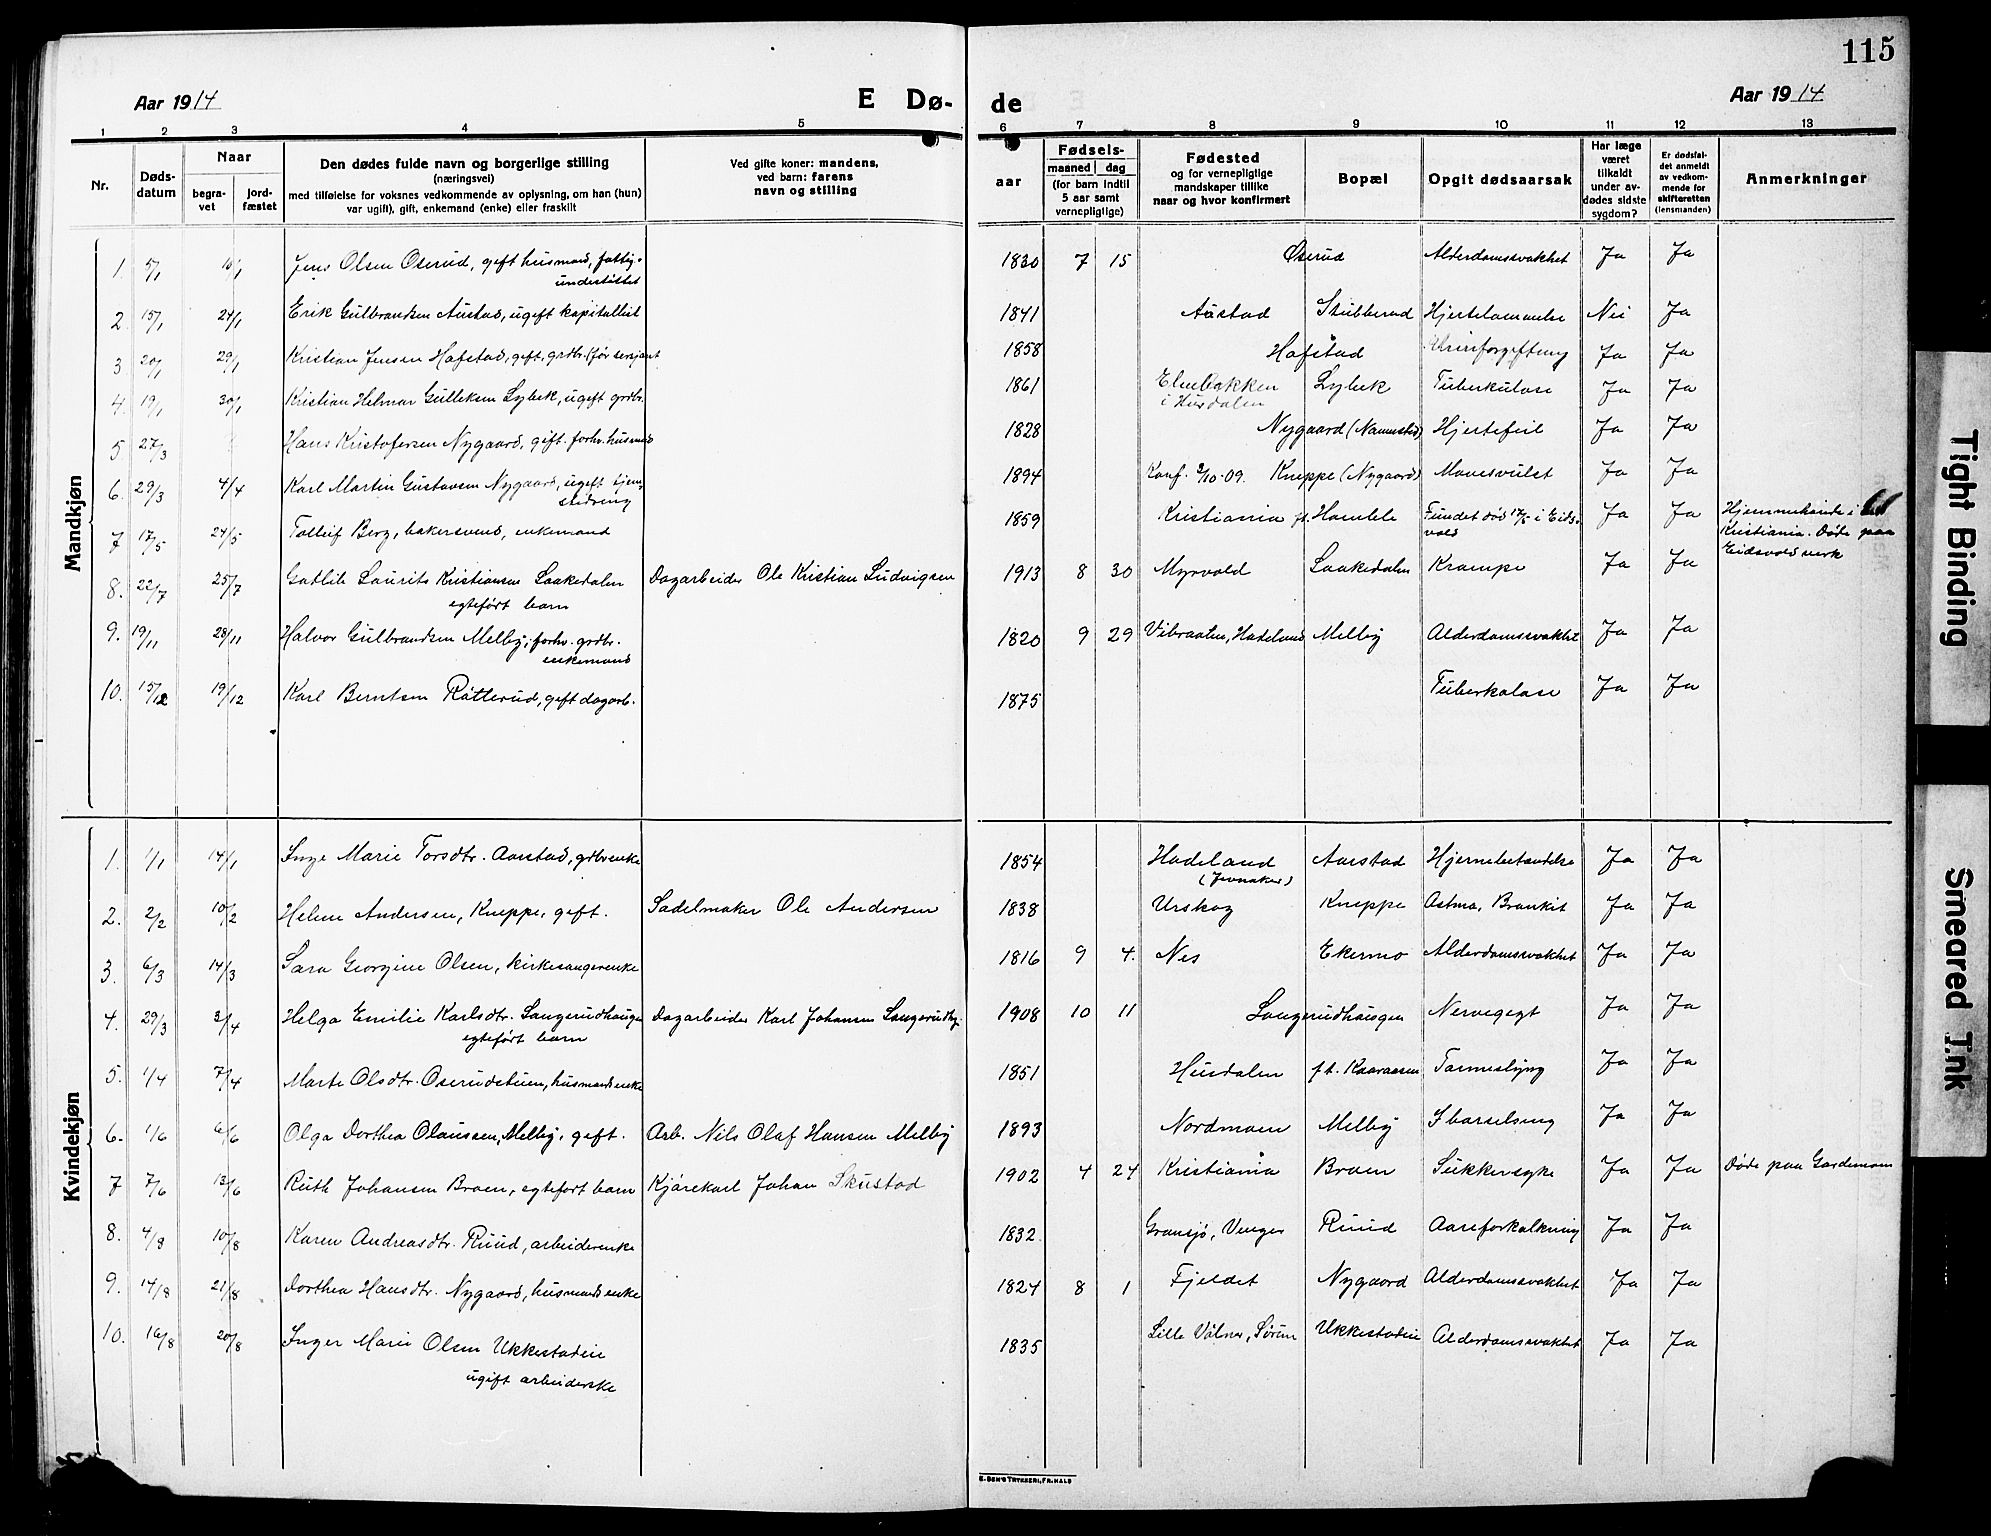 115
Aar 1914 E Dø- de Aar 1914
1 2 3 4 5 6 7 8 9 10 11 12 13
Nr. Døds-datum Naar begravet jordfæstet
Den dødes fulde navn og borgerlige stilling
(næringsvei)
med tilføielse for voksnes vedkommende av oplysning, om han (hun)
var ugift), gift, enkemand (enke) eller fraskilt
Ved gifte koner: mandens,
ved barn: farens
navn og stilling
Fødsels-
aar maaned dag
(for barn indtil
5 aar samt
vernepligtige)
Fødested
og for vernepligtige
mandskaper tillike
naar og hvor konfirmert
Bopæl
Opgit dødsaarsak
Har læge
været
tilkaldt
under av-
dødes sidste
sygdom?
Er dødsfal-
det anmeldt
av vedkom-
mende for
skifteretten
(lensmanden)
Anmerkninger
Mandkjøn
1. 5/1 10/1 Jens Olsen Oserud, gift husmand, fattig- 1830 7 15 Øserud Alderdomssvakhet Ja Ja
understøttet
2. 15/1 24/1 Erik Gulbrandsen Austad, ugift kapitallist 1841 Austad Stubberud Hjertelammelse Nei Ja
3. 20/1 29/1 Kristian Jensen Hafstad, gift, grdbr. (før sersjant 1858 Hafstad Urinforgiftning Ja Ja
4. 19/1 30/1 Kristian Helmar Gulleksen Lybek, ugift grdbr. 1861 Elnebakken Lybek Tuberkulose Ja Ja
i Hurdalen
5. 27/3 Hans Kristofersen Nygaard, gift. forhv. husmand 1828 Nygaard (Nannestad) Hjertefeil Ja Ja
6. 29/3 4/4 Karl Martin Gustavsen Nygaard, ugift 1894 Konf. 3/10-09. Kneppe (Nygaard) Mavesvulst Ja Ja
7 17/5 24/5 Tolleif Berg, bakersvend, enkemand 1859 Kristiania Fundet død 17/5 i Eids- Ja Ja Hjemmehørende i
vold Kristiania. Døde paa
Eidsvold verk
8. 22/7 25/7 Gotlib Laurits Kristiansen Laakedalen Dagarbeider Ole Kristian Ludvigsen 1913 8 30 Myrvold Laakedalen Krampe Ja Ja
egteført barn
9. 19/11 28/11 Halvor Gulbrandsen Melby, forhv. grdbr. 1820 9 29 Vibraaten, Hadeland Melby Alderdomssvakhet Ja Ja
enkemand
10. 15/12 19/12 Karl Berntsen Rotterud, gift dagarb. 1875 Tuberkolose Ja Ja
Kvindekjøn
1. 1/1 14/1 Inge Marie Torsdtr. Aarstad, grdbr.enke 1854 Hadeland Aarstad Hjernebetændelse Ja Ja
(Jevnaker)
2. 2/2 10/2 Helene Andersen, Kneppe, gift. Sadelmaker Ole Andersen 1838 Urskog Kneppe Astma, Bronkit Ja Ja
3. 6/3 14/3 Sara Georgine Olsen, kirkesangerenke 1816 9 4. Nes Ekermo Alderdomssvakhet Ja Ja
4. 29/3 3/4 Helga Emilie Karlsdtr. Langerudhaugen Dagarbeider Karl Johansen Langerudhg. 1908 10 11 Langerudhaugen Nervegigt Ja Ja
egteført barn
5. 1/4 7/4 Marte Olsdtr. Oserudstuen, husmandsenke 1851 Hurdalen p.t. Kaaraasen Tarmeslyng Ja Ja
6. 1/6 6/6 Olga Dorthea Olaussen, Melby, gift. Arb. Nils Olaf Hansen Melby 1893 Nordmoen Melby I barselseng Ja Ja
7 7/6 13/6 Ruth Johansen Braen, egteført barn Kjørekarl Johan Skustad 1902 4 24 Kristiania Braen Sukkersyke Ja Ja Døde paa Gardemoen
8. 4/8 10/8 Karen Andreasdtr. Ruud, arbeiderenke 1832 Gransjø, Vinger Ruud Aareforkalkning Ja Ja
9. 14/8 21/8 Dorthea Hansdtr. Nygaard, husmandsenke 1824 8 1 Fjeldet Nygaard Alderdomssvakhet Ja Ja
10. 16/8 20/8 Inger Marie Olsen Ukkestadeie 1835 Lille Vølner, Sørum Ukkestadeie Alderdomssvakhet Ja Ja
ugift arbeiderske
E. SEM'S TRYKKERI, FR.HALD
Tight Binding
Smeared Ink